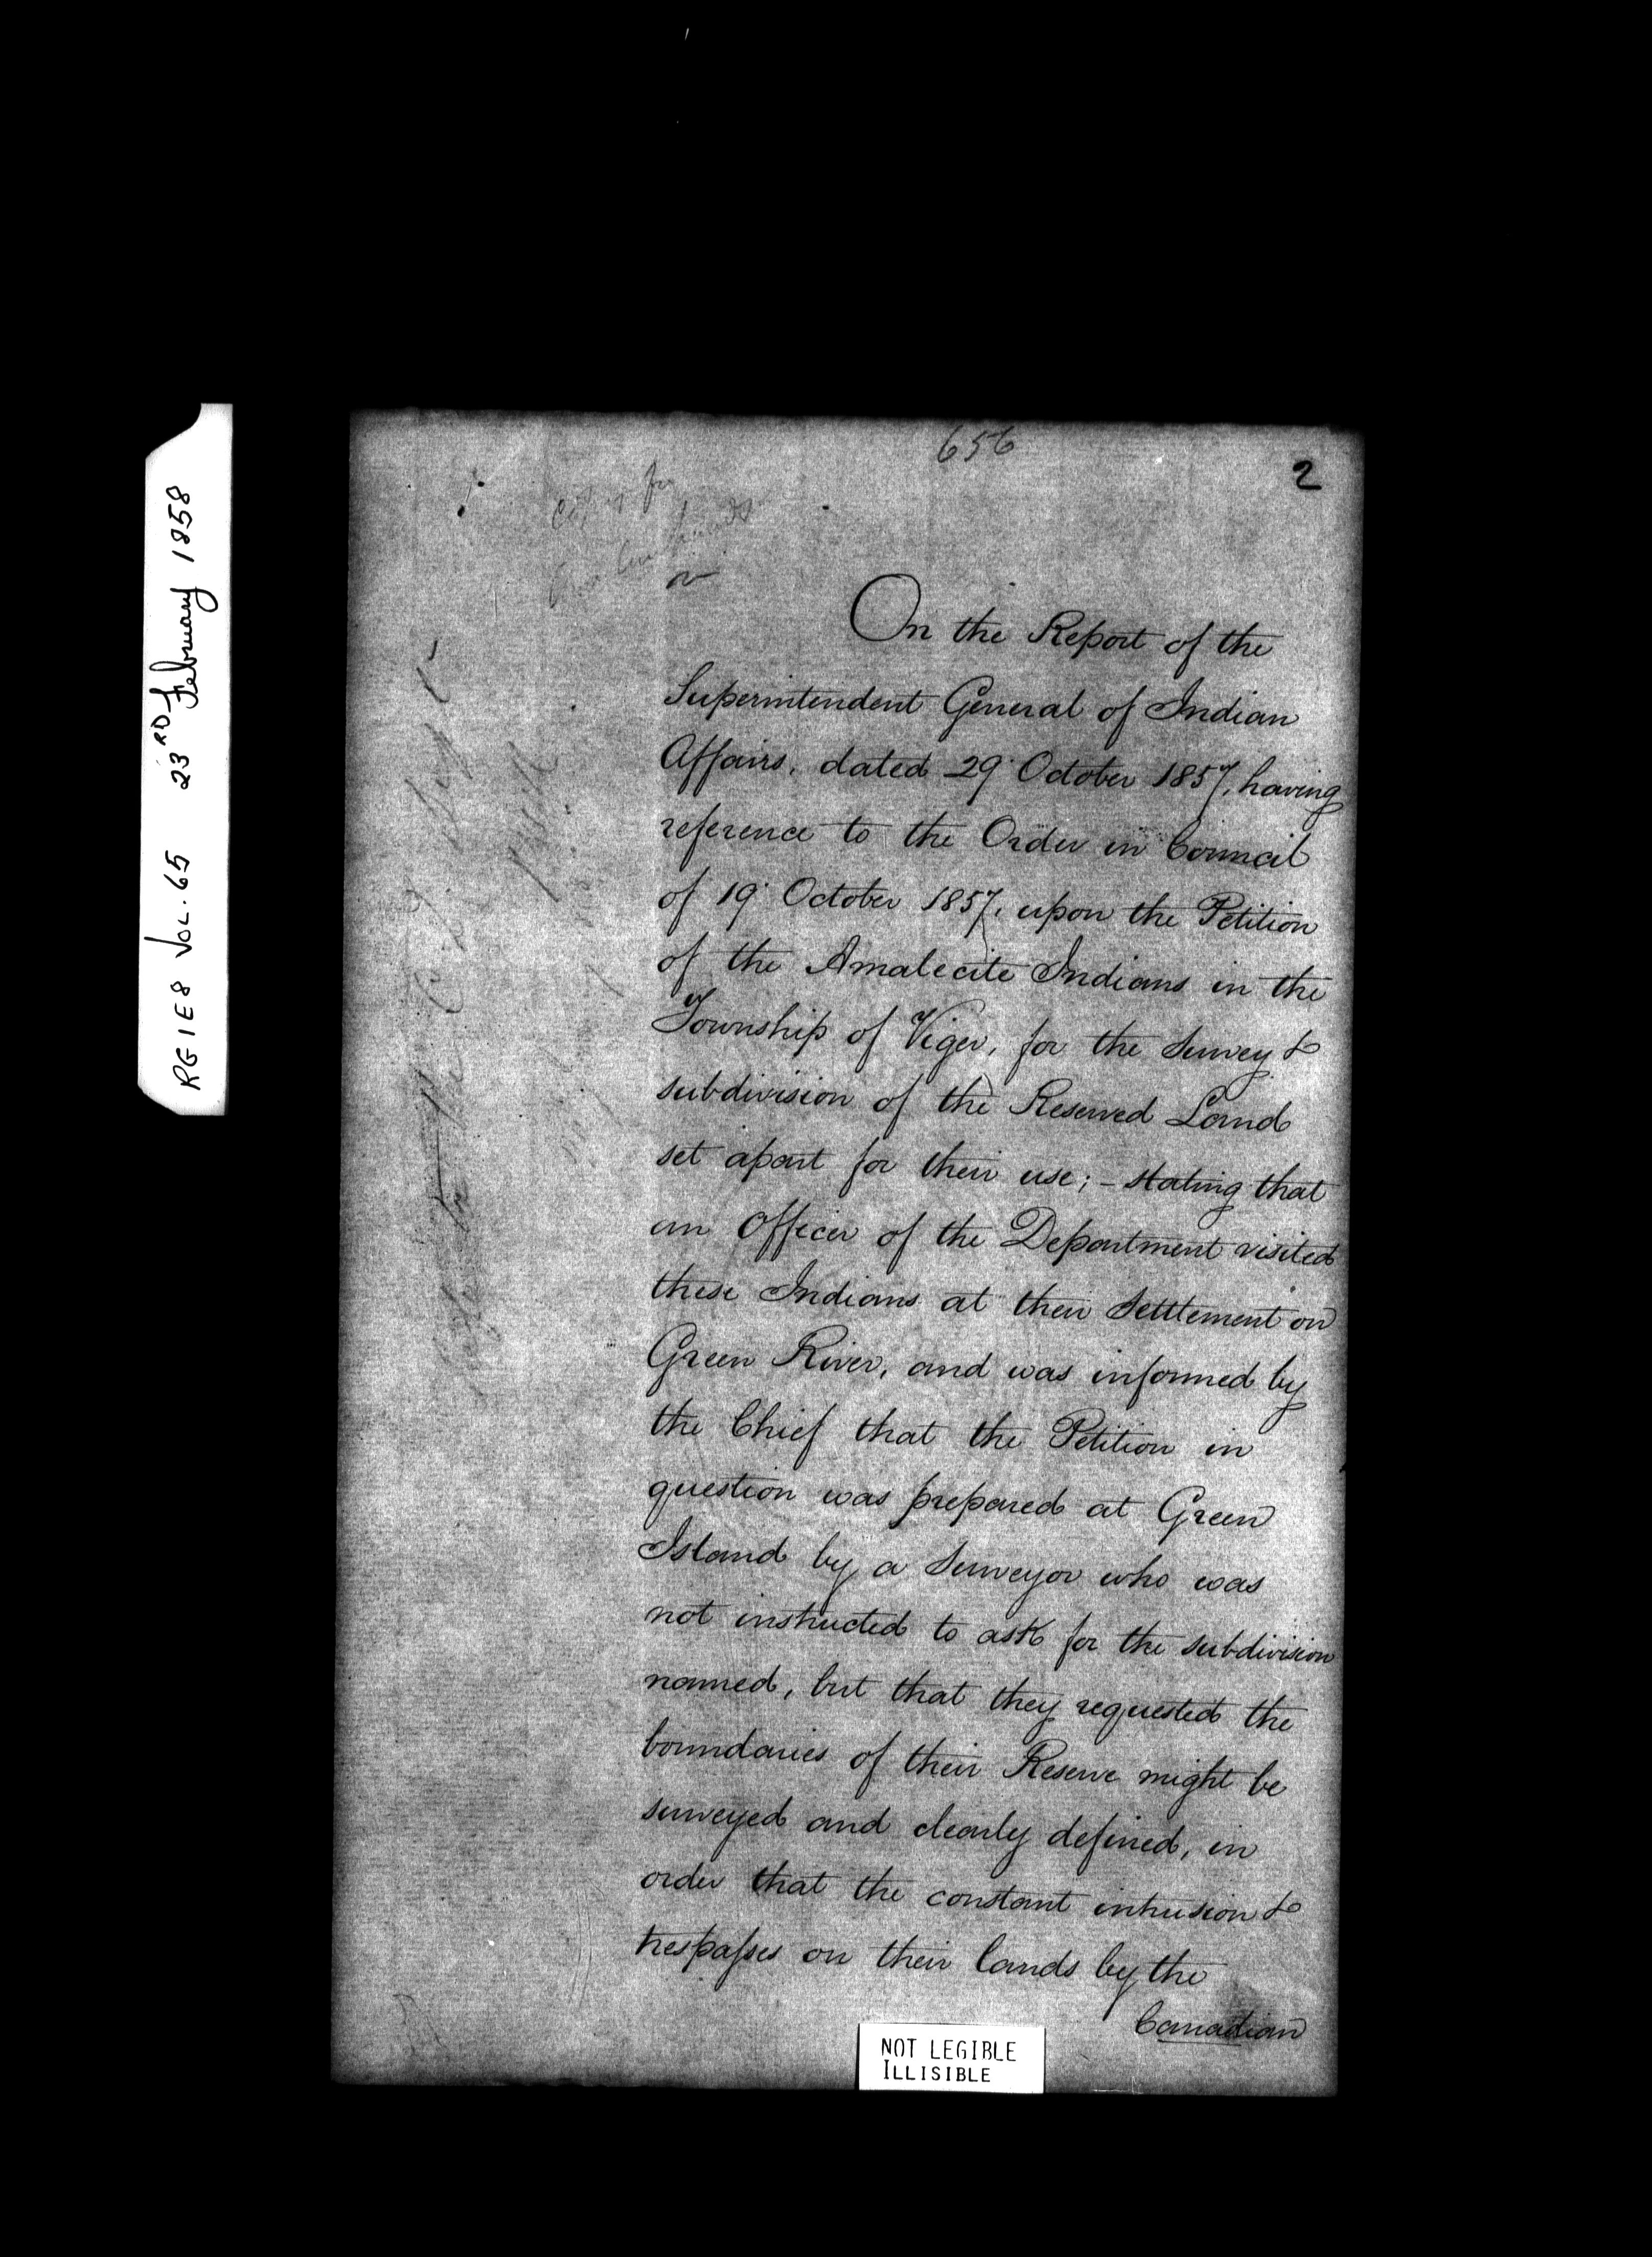 RG1E8 VOL. 65 23RD February 1858
656
2
On the Report of the
Superintendent General of Indian
Affairs, dated 29 October 1857, having
reference to the Order in Council
of 19 October 1857, upon the Petition
of the Amalecite Indians in the
Township of Viger, for the Survey &
subdivision of the Reserved Land
set apart for their use; - stating that
an Officer of the Department visited
these Indians at their Settlement on
Green River, and was informed by
the Chief that the Petition in
question was prepared at Green
Island by a Surveyor who was
not instructed to ask for the subdivision
named, but that they requested the
boundaries of their Reserve might be
surveyed and clearly defined, in
order that the constant intrusion &
trespasses on their lands by the
Canadian
NOT LEGIBLE
ILLISIBLE